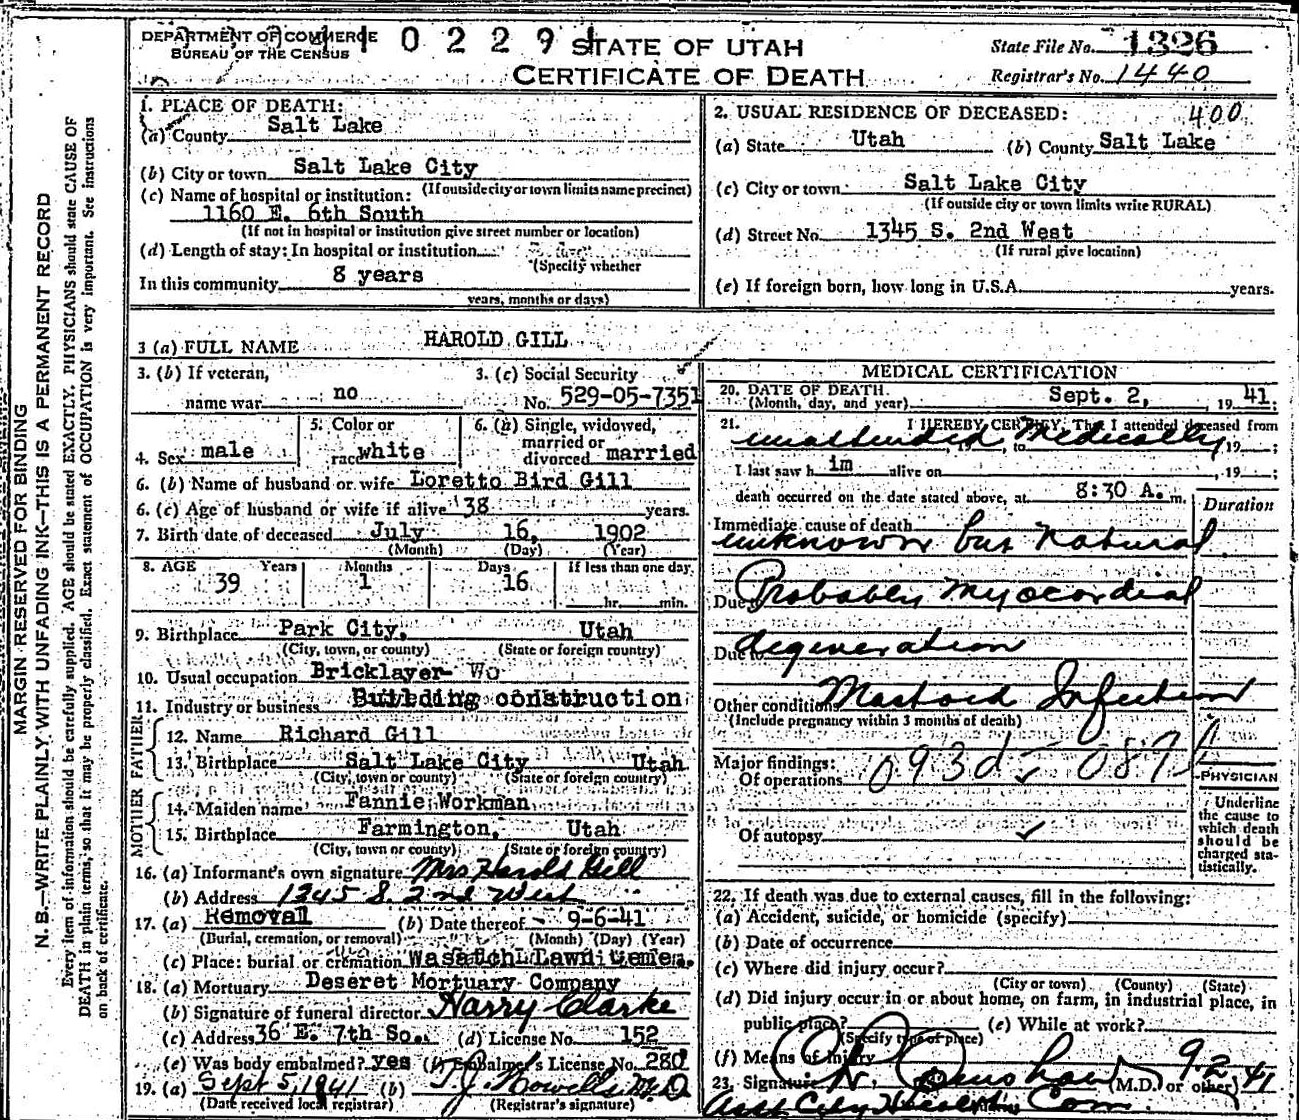 DEPARTMENT OF COMMERCE
BUREAU OF THE CENSUS
0 2 2 9
STATE OF UTAH
CERTIFICATE OF DEATH
State File No. 1326
Registrar's No. 1440
MARGIN RESERVED FOR BINDING
N. B.—WRITE PLAINLY WITH UNFADING INK—THIS IS A PERMANENT RECORD
Every item of information should be carefully supplied. AGE should be stated EXACTLY. PHYSICIANS should state CAUSE OF
DEATH in plain terms, so that it may be properly classified. Exact statement of OCCUPATION is very important. See instructions
on back of certificate.
1. PLACE OF DEATH:
(a) County Salt Lake
(b) City or town Salt Lake City
(If outside city or town limits name precinct)
(c) Name of hospital or institution:
1160 E. 6th South
(If not in hospital or institution give street number or location)
(d) Length of stay: In hospital or institution
(Specify whether
In this community 8 years
years, months or days)
2. USUAL RESIDENCE OF DECEASED: 400
(a) State Utah (b) County Salt Lake
(c) City or town Salt Lake City
(If outside city or town limits write RURAL)
(d) Street No. 1345 S. 2nd West
(If rural give location)
(e) If foreign born, how long in U.S.A. years.
3 (a) FULL NAME HAROLD GILL
3. (b) If veteran, name war no
3. (c) Social Security No. 529-05-7351
4. Sex male
5. Color or race white
6. (a) Single, widowed, married or divorced married
6. (b) Name of husband or wife Loretto Bird Gill
6. (c) Age of husband or wife if alive 38 years.
7. Birth date of deceased July 16, 1902
(Month) (Day) (Year)
8. AGE Years Months Days If less than one day
39 1 16 hr. min.
9. Birthplace Park City, Utah
(City, town, or county) (State or foreign country)
10. Usual occupation Bricklayer Wo
11. Industry or business Building construction
FATHER
12. Name Richard Gill
13. Birthplace Salt Lake City Utah
(City, town or county) (State or foreign country)
MOTHER
14. Maiden name Fannie Workman
15. Birthplace Farmington, Utah
(City, town or county) (State or foreign country)
16. (a) Informant's own signature Mrs Harold Gill
(b) Address 1345 S. 2nd West
17. (a) Removal (b) Date thereof 9-6-41
(Burial, cremation, or removal) (Month) (Day) (Year)
(c) Place: burial or cremation Wasatch Lawn Cemen.
18. (a) Mortuary Deseret Mortuary Company
(b) Signature of funeral director Harry Clarke
(c) Address 36 E. 7th So. (d) License No. 152
(e) Was body embalmed? yes (f) Embalmer's License No. 280
19. (a) Sept 5, 1941 (b) T. J. Howells M.D
(Date received local registrar) (Registrar's signature)
MEDICAL CERTIFICATION
20. DATE OF DEATH Sept. 2, 19 41;
(Month, day, and year)
21. I HEREBY CERTIFY, That I attended deceased from
unattended Medically, 19 ;
I last saw h im alive on , 19 ;
death occurred on the date stated above, at 8:30 A. m.
Duration
Immediate cause of death
unknown but Natural
Due to Probably Myocordial
Due to degeneration
Other conditions Mastoid Infection
(Include pregnancy within 3 months of death)
Major findings:
Of operations 093d
Of autopsy
PHYSICIAN
Underline
the cause to
which death
should be
charged sta-
tistically.
22. If death was due to external causes, fill in the following:
(a) Accident, suicide, or homicide (specify)
(b) Date of occurrence
(c) Where did injury occur?
(City or town) (County) (State)
(d) Did injury occur in or about home, on farm, in industrial place, in
public place? (e) While at work?
(Specify type of place)
(f) Means of Injury
23. Signature (M.D. or other) 9.2.41
Asst City Health Com.